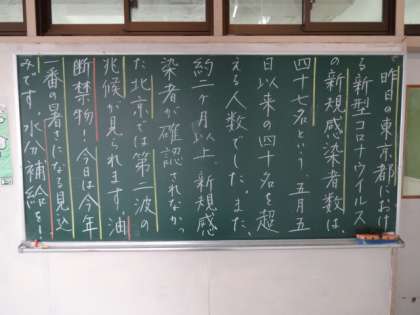 で昨日の東京都におけ
る新型コロナウイルス
の新規感染者数は、
四十七名という、五月五
日以来の四十名を超
える人数でした。また、
約二ヶ月以上、新規感
染者が確認されなかっ
た北京では第二波の
兆候が見られます。油
断禁物！今日は今年
一番の暑さになる見込
みです。水分補給を！